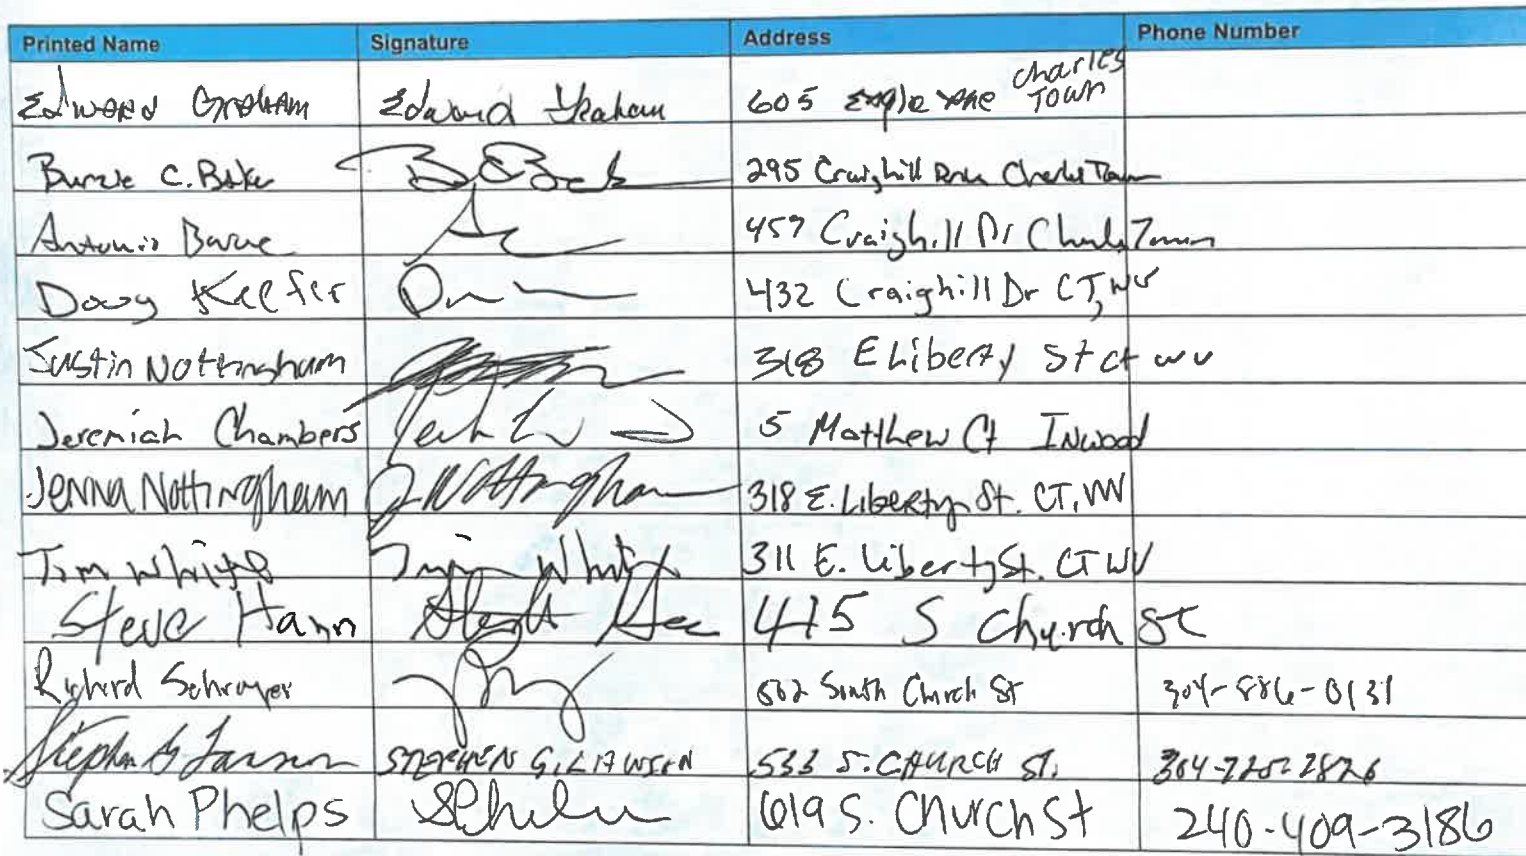 Printed Name Signature Address Phone Number
Edward Graham Edward Graham 605 Engle Charles Town
C. Bake 295 Craighill Charles Town
Antonio 457 Craighill Dr Charles Town
Doug Keefer 432 Craighill Dr CT, WV
Justin Nottingham 318 E Liberty St CT WV
Jeremiah Chambers 5 Matthew Ct Inwood
Jenna Nottingham J Nottingham 318 E. Liberty St. CT, WV
Tim White Tim White 311 E. Liberty St. CT WV
Steve Hann 415 S Church St
Richard Schroyer South Church St 304-886-0131
Stephen G Lawson STEPHEN G. LAWSON 533 S. CHURCH ST.
Sarah Phelps 619 S. Church St 240-409-3186